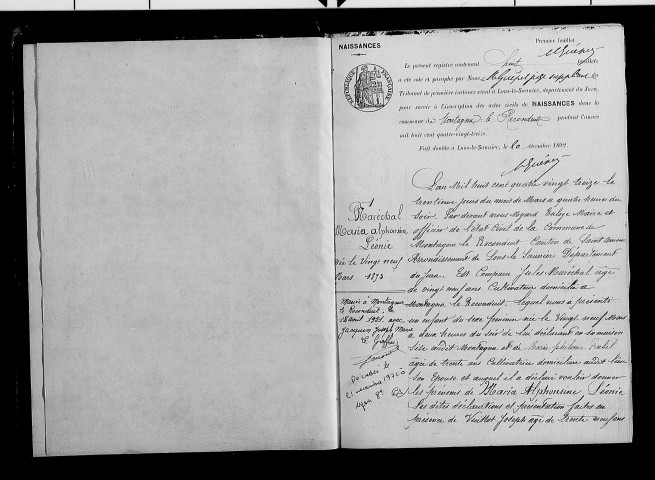 Premier feuillet
NAISSANCES
Le présent registre contenant huit feuillets
a été coté et paraphé par Nous juge suppléant du
Tribunal de première instance séant à Lons-le-Saunier, département du Jura,
pour servir à l'inscription des actes civils de NAISSANCES dans la
commune de Montagna le Reconduit pendant l'année
mil huit cent quatre-vingt-treize.
Fait double à Lons-le-Saunier, le 20 décembre 1892.
REPUBLIQUE FRANÇAISE
1
Maréchal
Maria Alphonsine
Léonie
née le Vingt neuf
Mars 1893
Marié à Montagna
le Reconduit, le
avril 1921 avec
Jacquier Joseph Marie
Le Greffier,
Décédée le
novembre 1970
L'an Mil huit cent quatre vingt treize le
trentième jours du mois de Mars à quatre heures du
soir. Par devant nous Maire et
officier de l'état Civil de la Commune de
Montagna le Reconduit Canton de Saint amour
Arrondissement de Lons le Saunier Département
du Jura. Est Comparu Jules Maréchal âgé
de vingt neuf ans Cultivateur domicilié à
Montagna le Reconduit. Lequel nous a présenté
un enfant du sexe féminin née le Vingt neuf Mars
à deux heures du soir de lui déclarant en sa maison
sise audit Montagna et de Marie
âgée de trente ans Cultivatrice domiciliée audit lieu
son Epouse et auquel il a déclaré vouloir donner
les prénoms de Maria Alphonsine Léonie
Les dites déclarations et présentation faites en
présence de Vuillot Joseph âgé de trente neuf ans